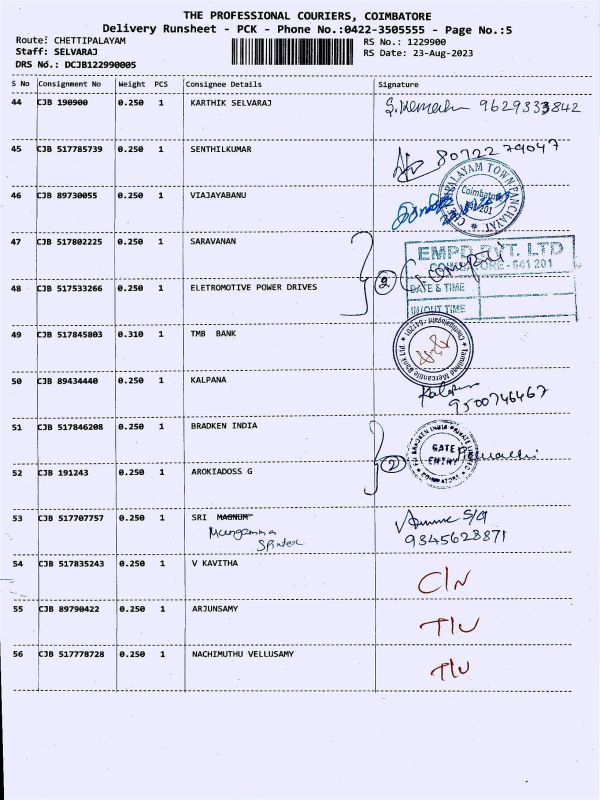 THE PROFESSIONAL COURIERS, COIMBATORE
Delivery Runsheet - PCK - Phone No.:0422-3505555 - Page No.:5
Route: CHETTIPALAYAM
RS No.: 1229900
Staff: SELVARAJ
RS Date: 23-Aug-2023
DRS No.: DCJB122990005
S No Consignment No Weight PCS Consignee Details Signature
44 CJB 190900 0.250 1 KARTHIK SELVARAJ 9629333842
45 CJB 517785739 0.250 1 SENTHILKUMAR 8072279047
46 CJB 89730055 0.250 1 VIAJAYABANU
TOWN PANCHAYAT Coimbatore 641 201
47 CJB 517802225 0.250 1 SARAVANAN
EMPD PVT. LTD
COIMBATORE - 641 201
48 CJB 517533266 0.250 1 ELETROMOTIVE POWER DRIVES 2
DATE & TIME
IN/OUT TIME
49 CJB 517845803 0.310 1 TMB BANK
Tamilnad Mercantile Bank Ltd Chettipalayam - 641201
50 CJB 89434440 0.250 1 KALPANA Kalpana
9500746467
51 CJB 517846208 0.250 1 BRADKEN INDIA
BRADKEN INDIA PRIVATE LIMITED
GATE
ENTRY
COIMBATORE
52 CJB 191243 0.250 1 AROKIADOSS G 2
53 CJB 517707757 0.250 1 SRI MAGNUM S/G
Mangamma
Spintex
9345628871
54 CJB 517835243 0.250 1 V KAVITHA C/N
55 CJB 89790422 0.250 1 ARJUNSAMY T/U
56 CJB 517778728 0.250 1 NACHIMUTHU VELLUSAMY T/U